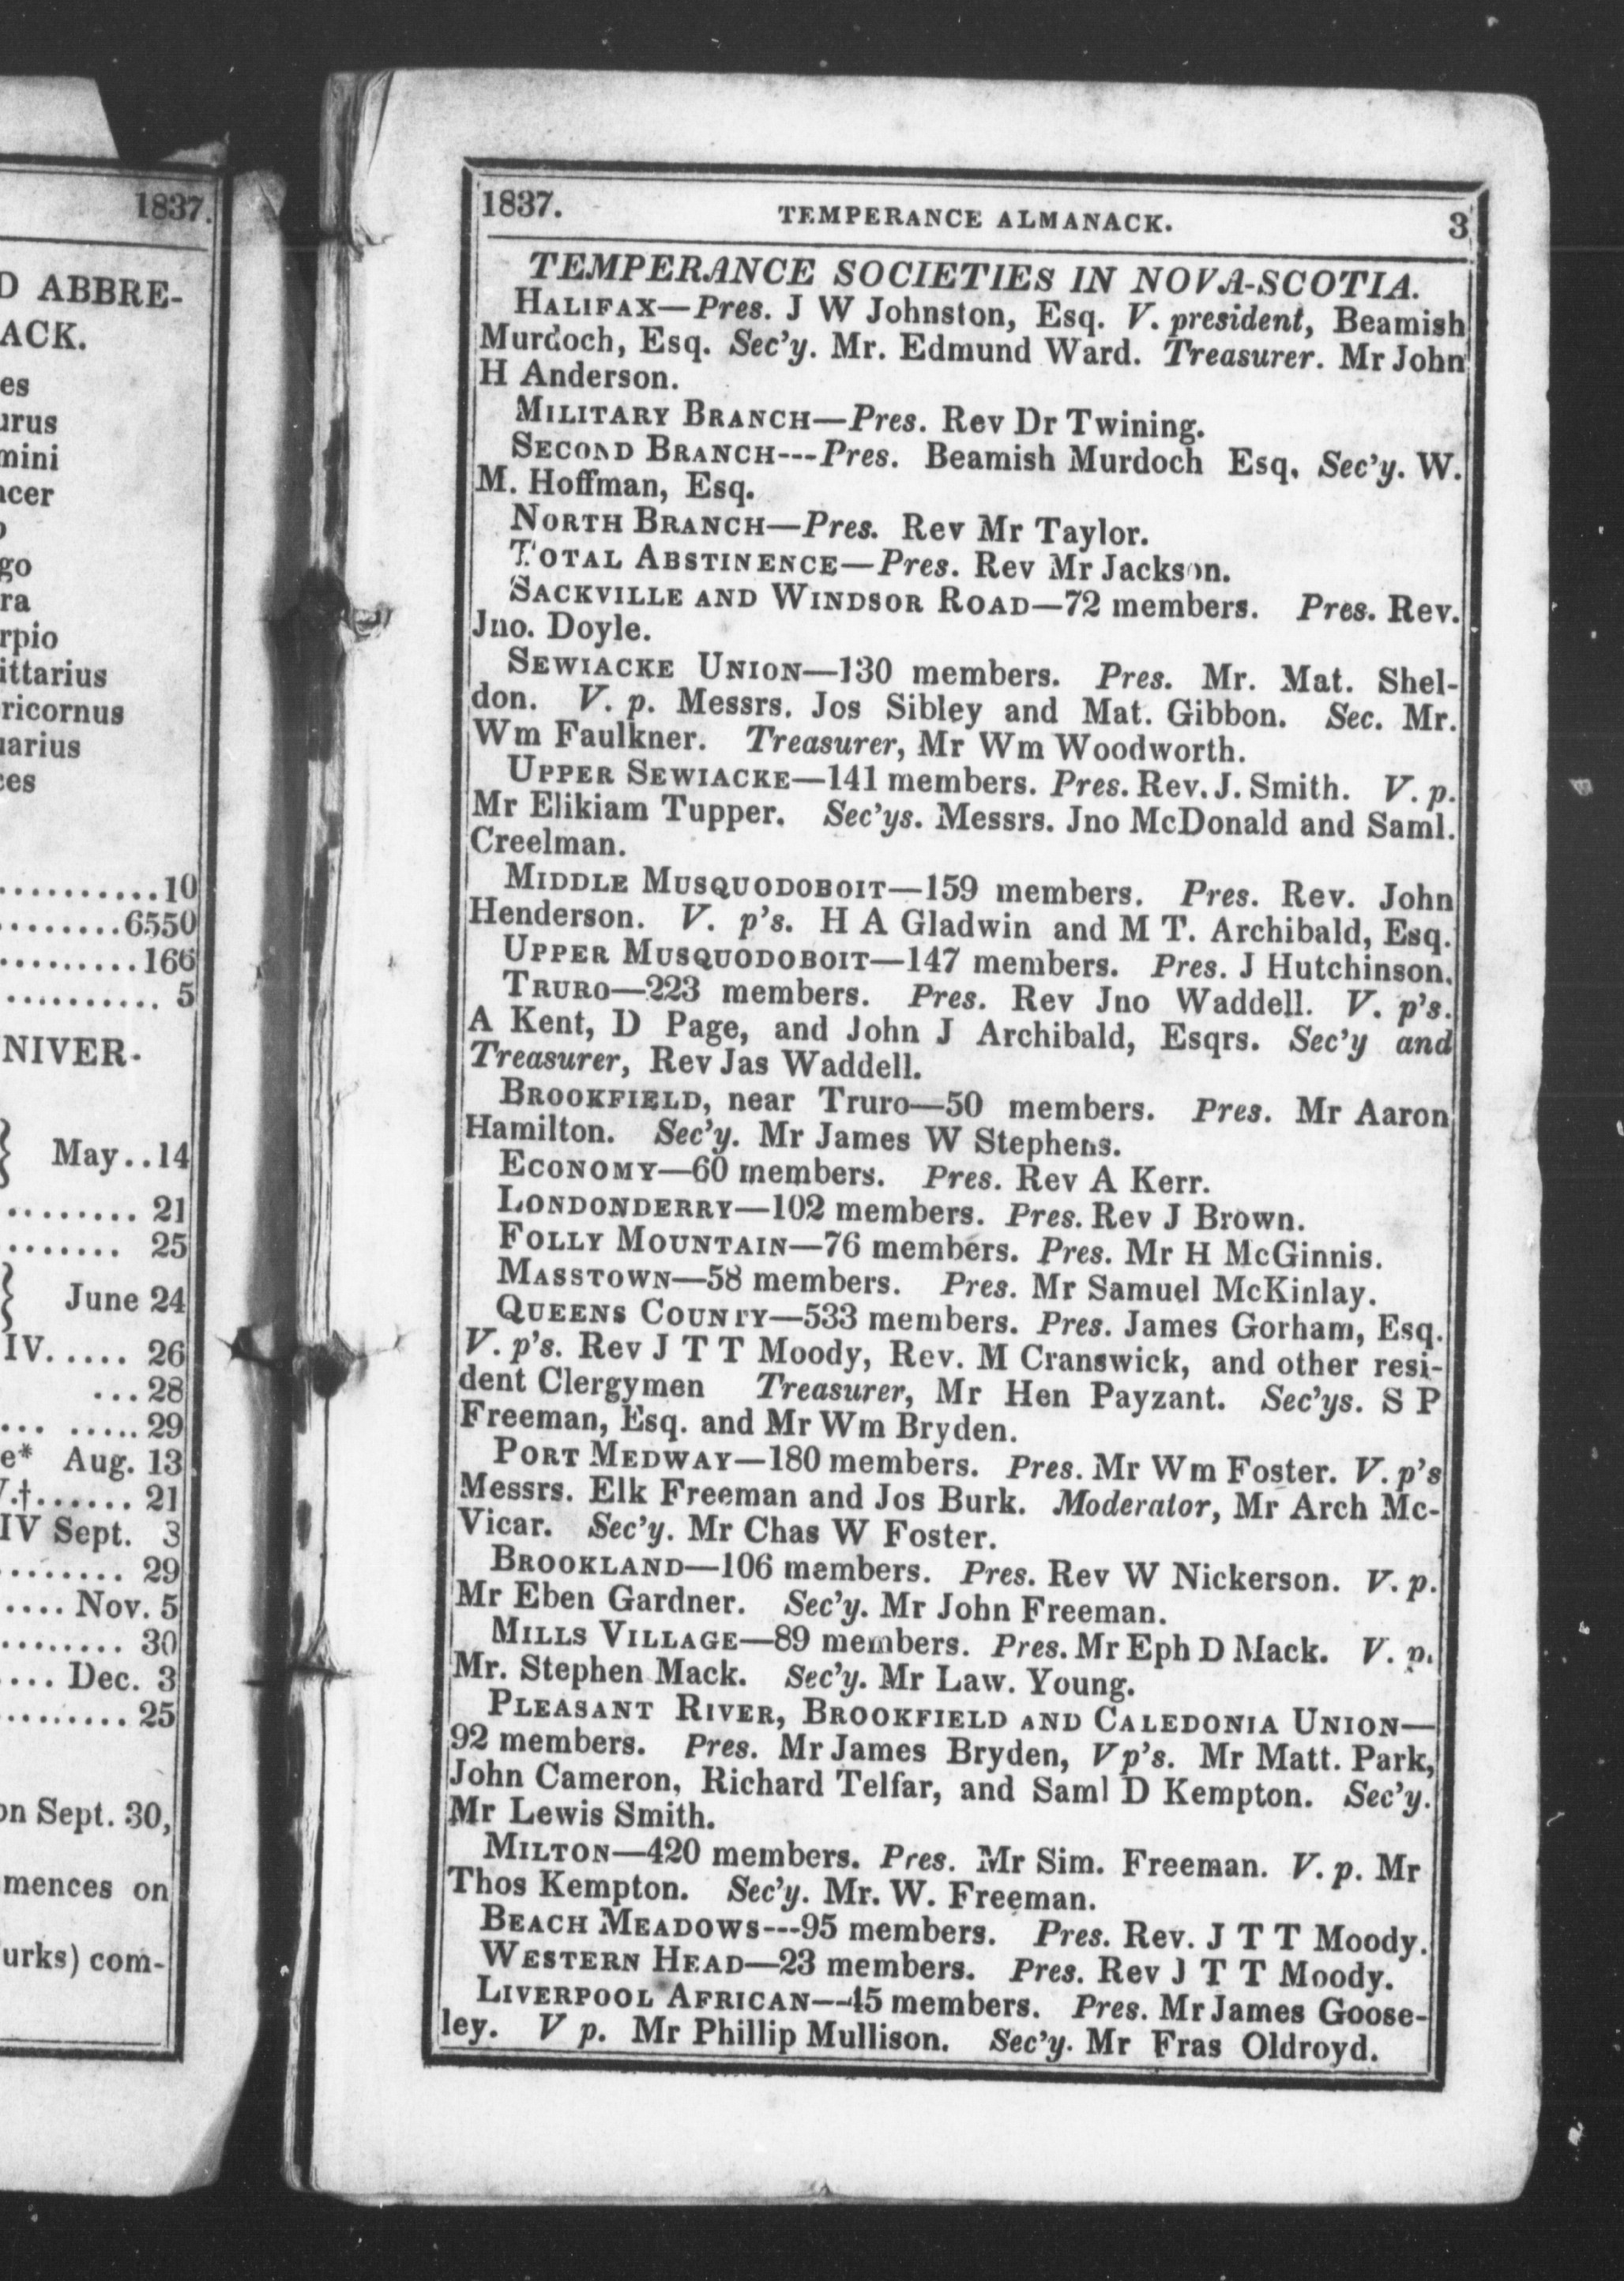 1837.
D ABBRE-
ACK.
es
urus
mini
ncer
o
go
ra
rpio
ittarius
ricornus
uarius
ces
..........10
........6550
.........166
.......... 5
NIVER-
} May..14
........ 21
....... 25
} June 24
IV..... 26
...28
... .....29
e* Aug. 13
V.†...... 21
IV Sept. 3
........ 29
.... Nov. 5
........ 30
.... Dec. 3
......... 25
on Sept. 30,
mences on
urks) com-
1837. TEMPERANCE ALMANACK. 3
TEMPERANCE SOCIETIES IN NOVA-SCOTIA.
HALIFAX—Pres. J W Johnston, Esq. V. president, Beamish
Murdoch, Esq. Sec'y. Mr. Edmund Ward. Treasurer. Mr John
H Anderson.
MILITARY BRANCH—Pres. Rev Dr Twining.
SECOND BRANCH---Pres. Beamish Murdoch Esq. Sec'y. W.
M. Hoffman, Esq.
NORTH BRANCH—Pres. Rev Mr Taylor.
TOTAL ABSTINENCE—Pres. Rev Mr Jackson.
SACKVILLE AND WINDSOR ROAD—72 members. Pres. Rev.
Jno. Doyle.
SEWIACKE UNION—130 members. Pres. Mr. Mat. Shel-
don. V. p. Messrs. Jos Sibley and Mat. Gibbon. Sec. Mr.
Wm Faulkner. Treasurer, Mr Wm Woodworth.
UPPER SEWIACKE—141 members. Pres. Rev. J. Smith. V. p.
Mr Elikiam Tupper. Sec'ys. Messrs. Jno McDonald and Saml.
Creelman.
MIDDLE MUSQUODOBOIT—159 members. Pres. Rev. John
Henderson. V. p's. H A Gladwin and M T. Archibald, Esq.
UPPER MUSQUODOBOIT—147 members. Pres. J Hutchinson.
TRURO—223 members. Pres. Rev Jno Waddell. V. p's.
A Kent, D Page, and John J Archibald, Esqrs. Sec'y and
Treasurer, Rev Jas Waddell.
BROOKFIELD, near Truro—50 members. Pres. Mr Aaron
Hamilton. Sec'y. Mr James W Stephens.
ECONOMY—60 members. Pres. Rev A Kerr.
LONDONDERRY—102 members. Pres. Rev J Brown.
FOLLY MOUNTAIN—76 members. Pres. Mr H McGinnis.
MASSTOWN—58 members. Pres. Mr Samuel McKinlay.
QUEENS COUNTY—533 members. Pres. James Gorham, Esq.
V. p's. Rev J T T Moody, Rev. M Cranswick, and other resi-
dent Clergymen Treasurer, Mr Hen Payzant. Sec'ys. S P
Freeman, Esq. and Mr Wm Bryden.
PORT MEDWAY—180 members. Pres. Mr Wm Foster. V. p's
Messrs. Elk Freeman and Jos Burk. Moderator, Mr Arch Mc-
Vicar. Sec'y. Mr Chas W Foster.
BROOKLAND—106 members. Pres. Rev W Nickerson. V. p.
Mr Eben Gardner. Sec'y. Mr John Freeman.
MILLS VILLAGE—89 members. Pres. Mr Eph D Mack. V. p.
Mr. Stephen Mack. Sec'y. Mr Law. Young.
PLEASANT RIVER, BROOKFIELD AND CALEDONIA UNION—
92 members. Pres. Mr James Bryden, V p's. Mr Matt. Park,
John Cameron, Richard Telfar, and Saml D Kempton. Sec'y.
Mr Lewis Smith.
MILTON—420 members. Pres. Mr Sim. Freeman. V. p. Mr
Thos Kempton. Sec'y. Mr. W. Freeman.
BEACH MEADOWS---95 members. Pres. Rev. J T T Moody.
WESTERN HEAD—23 members. Pres. Rev J T T Moody.
LIVERPOOL AFRICAN—45 members. Pres. Mr James Goose-
ley. V p. Mr Phillip Mullison. Sec'y. Mr Fras Oldroyd.